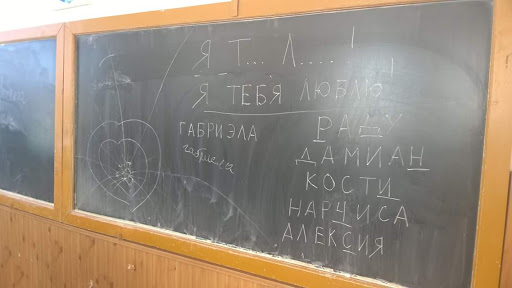 Я Т... Л....!
Я ТЕБЯ ЛЮБЛЮ
ГАБРИЭЛА
габриела
РАДУ
ДАМИАН
КОСТИ
НАРЧИСА
АЛЕКСИЯ